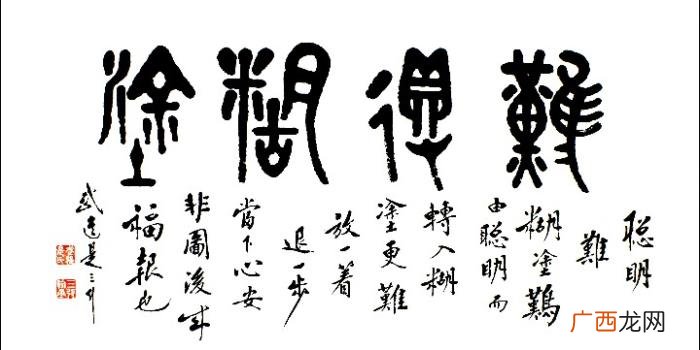 難得糊塗
聰明
難
糊塗難
由聰明而
轉入糊
塗更難
放一著
退一步
當下心安
非圖後來
福報也
广西龙网